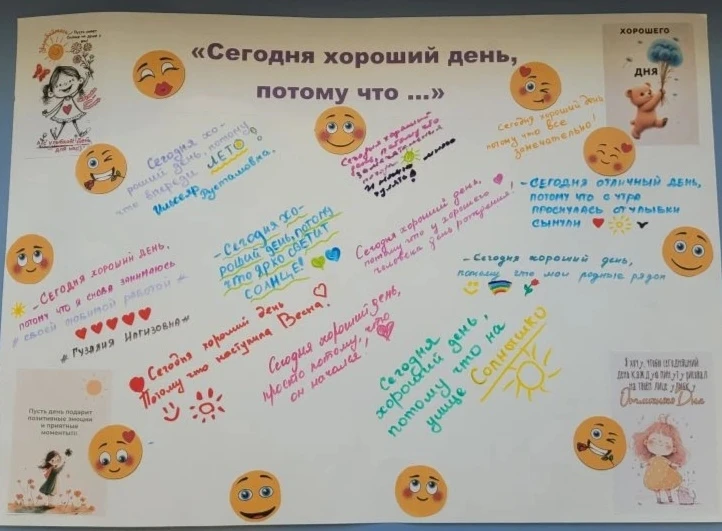 «Сегодня хороший день,
потому что ...»
ХОРОШЕГО
ДНЯ
Сегодня хо-
роший день, потому
что впереди ЛЕТО
Густамовна.
Сегодня хороший
день, потому что
замечательная
И можно много
гулять!
Сегодня хороший день
потому что все
замечательно!
- СЕГОДНЯ ОТЛИЧНЫЙ ДЕНЬ,
ПОТОМУ ЧТО С УТРА
ПРОСНУЛАСЬ ОТ УЛЫБКИ
СЫНУЛИ
- СЕГОДНЯ ХОРОШИЙ ДЕНЬ,
ПОТОМУ ЧТО Я СНОВА ЗАНИМАЮСЬ
# СВОЕЙ ЛЮБИМОЙ РАБОТОЙ #
# ГУЗАЛИЯ #
- Сегодня хо-
роший день, потому
что ярко светит
солнце!
Сегодня хороший день,
потому что у хорошего
человека день рождения!
- Сегодня хороший день,
потому что мои родные рядом
Сегодня хороший день
Потому что наступила Весна.
Сегодня хороший день,
просто потому, что
он начался!
Сегодня
хороший день,
потому что на
улице Солнышко
Пусть день подарит
позитивные эмоции
и приятные
моменты!!!
Я хочу, чтобы сегодняшний
день каждую минуту рисовал
на твоём лице улыбку
Дня